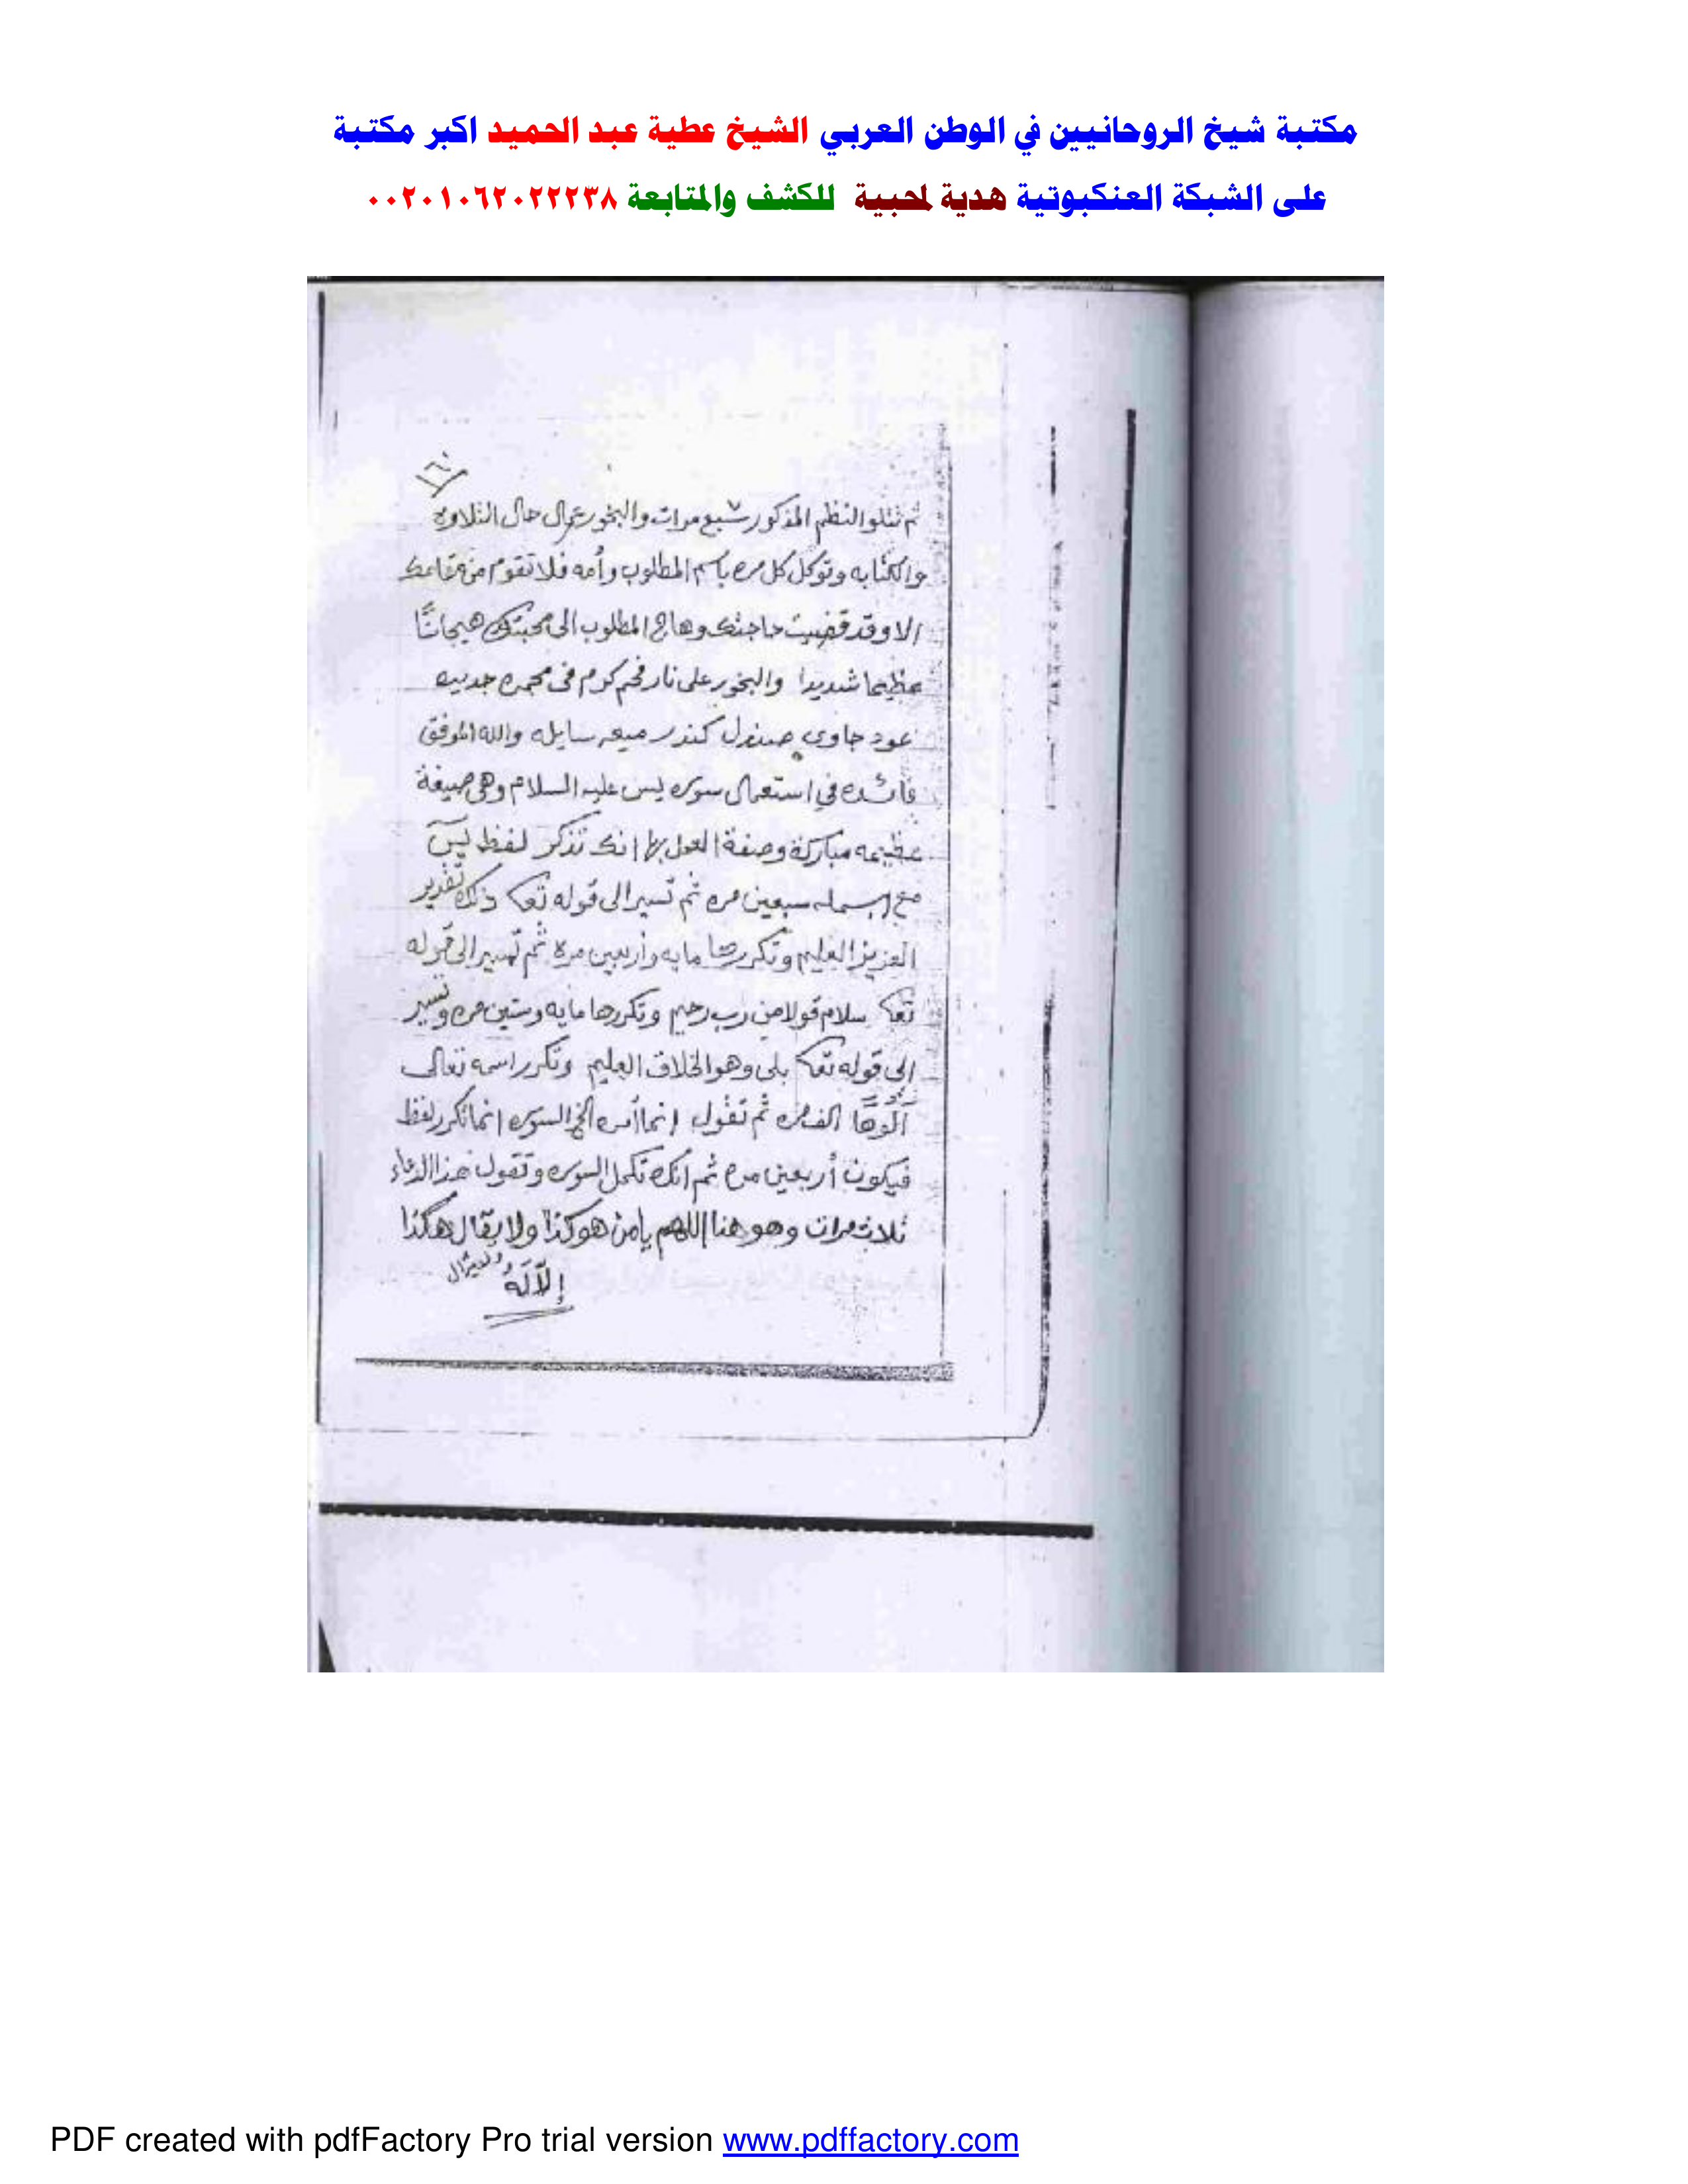 مكتبة شيخ الروحانيين في الوطن العربي الشيخ عطية عبد الحميد اكبر مكتبة
على الشبكة العنكبوتية هدية لمحبية للكشف والمتابعة ٠٠٢٠١٠٦٢٠٢٢٢٣٨
ثم تتلو النظم المذكور سبع مرات والبخور عمال حال التلاوه
والكتابه وتوكل كل مره باسم المطلوب وأمه فلا تقوم من مقامك
الا وقد قضيت حاجتك وهاج المطلوب الى محبتك هيجانا
عظيما شديدا والبخور على نار فحم كرم فى مجمره جديده
عود جاوى صندل كندر ميعه سايله والله الموفق
فائده في استعمال سوره يس عليه السلام وهى صيغة
عظيمه مباركة وصفة العمل بها انك تذكر لفظ يس
مع البسمله سبعين مره ثم تسير الى قوله تعا ذلك تقدير
العزيز العليم وتكررها مايه وأربعين مرة ثم تسير الى قوله
تعا سلام قولا من رب رحيم وتكررها مايه وستين مره وتسير
الى قوله تعا بلى وهو الخلاق العليم وتكرر اسمه تعالى
الف مره ثم تقول انما أمره الخ السوره انما تكرر لفظ
فيكون أربعين مره ثم انك تكمل السوره وتقول هذا الدعاء
ثلاث مرات وهو هنا اللهم يا من هو كذا ولا يقال هكذا